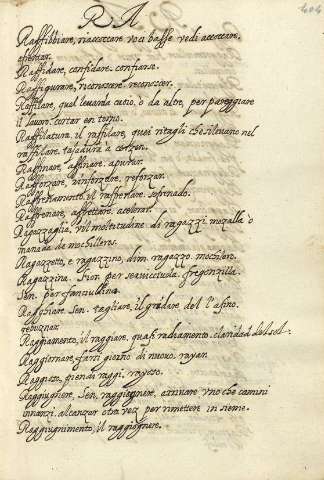 RA
404
Raffibbiare, riaccoccare voci basse vedi accoccare.
afferrar.
Raffidare, confidare. confiarse.
Raffigurare, riconoscere. reconoscer.
Raffilare, qual levanda cuoio, o da altre, per pareggiare
il lavoro. cortar en torno.
Raffilatura, il raffilare, quei ritagli che si levano nel
raffilare. tajadura, o cerzen.
Raffinare, affinare. apurar.
Rafforzare, rinforzare. reforzar.
Raffrenamento, il raffrenare. sofrenado.
Raffrettare, affrettare. acelerar.
Ragazzaglia, vil moltitudine di ragazzi. mozalla, o
manada de mochilleros.
Ragazzetto, e ragazzino, dim. ragazzo. mochillero.
Ragazzina. fior. per servicciuola. fregonzilla.
Sen. per fanciullina.
Raggiare. Sen. tagliare, il gridare dell'asino.
rebuznar.
Raggiamento, il raggiare, quasi radiamento. claridad del sol.
Raggiornare, farsi giorno di nuovo. rayar.
Raggioso, pien di raggi. rayoso.
Raggiugnere, Sen. raggiognere, arrivare uno che camini
innanzi. alcanzar otra vez per rimettere in sieme.
Raggiugnimento, il raggiognere.